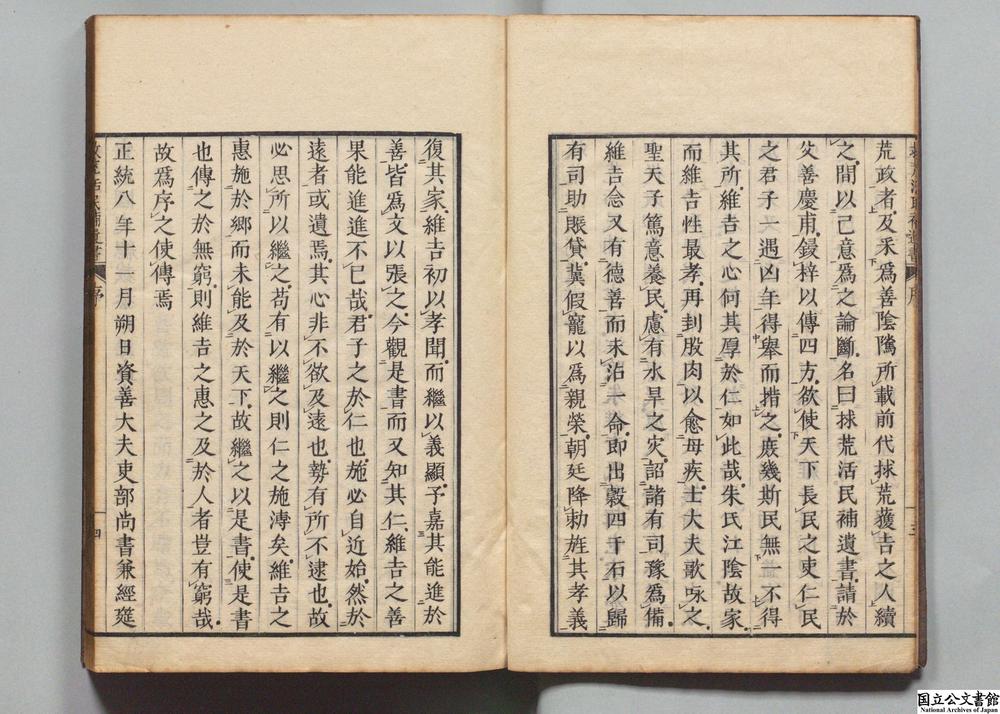 荒政者及采爲善陰隲所載前代捄荒獲吉之人續
之間以己意爲之論斷名曰捄荒活民補遺書請於
父善慶甫鋟梓以傳四方欲使天下長民之吏仁民
之君子一遇凶年得舉而措之庶幾斯民無一不得
其所維吉之心何其厚於仁如此哉朱氏江陰故家
而維吉性最孝再刲股肉以愈母疾士大夫歌咏之
聖天子篤意養民慮有水旱之灾詔諸有司豫爲備
維吉念又有德善而未沾一命即出穀四千石以歸
有司助賑貸冀假寵以爲親榮朝廷降勑旌其孝義
序
三
復其家維吉初以孝聞而繼以義顯予嘉其能進於
善皆爲文以張之今觀是書而又知其仁維吉之善
果能進進不已哉君子之於仁也施必自近始然於
遠者或遺焉其心非不欲及遠也勢有所不逮也故
必思所以繼之苟有以繼之則仁之施溥矣維吉之
惠施於鄉而未能及於天下故繼之以是書使是書
也傳之於無窮則維吉之惠之及於人者豈有窮哉
故爲序之使傳焉
正統八年十一月朔日資善大夫吏部尚書兼經筵
序
四
国立公文書館
National Archives of Japan